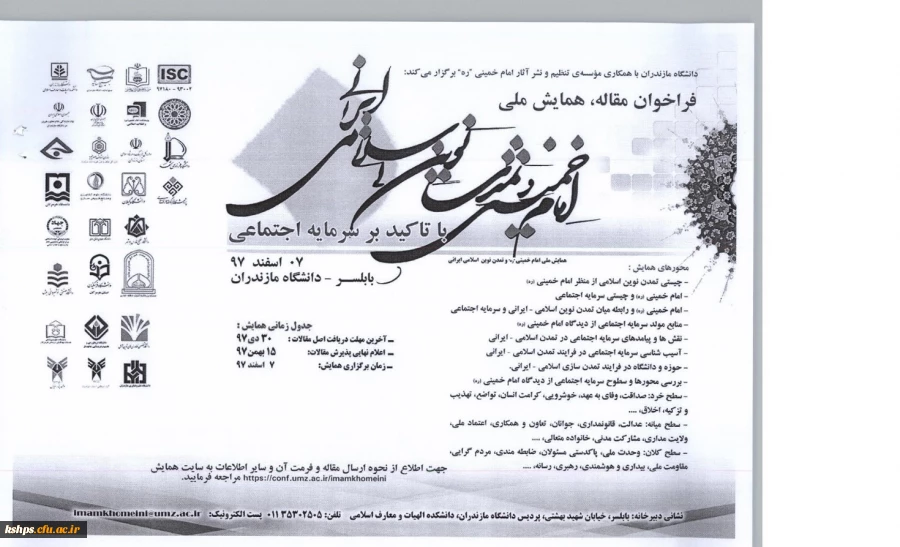 دانشگاه مازندران با همکاری مؤسسه‌ی تنظیم و نشر آثار امام خمینی "ره" برگزار می‌کند:
فراخوان مقاله، همایش ملی
امام خمینی و تمدن نوین اسلامی ایرانی
با تاکید بر سرمایه اجتماعی
همایش ملی امام خمینی (ره) و تمدن نوین اسلامی ایرانی
۰۷ اسفند ۹۷
بابلسر - دانشگاه مازندران
ISC
۹۷۱۸۰-۹۳۰۰۲
محورهای همایش :
- چیستی تمدن نوین اسلامی از منظر امام خمینی (ره)
- امام خمینی (ره) و چیستی سرمایه اجتماعی
- امام خمینی (ره) و رابطه میان تمدن نوین اسلامی - ایرانی و سرمایه اجتماعی
- منابع مولد سرمایه اجتماعی از دیدگاه امام خمینی (ره)
- نقش ها و پیامدهای سرمایه اجتماعی در تمدن اسلامی - ایرانی
- آسیب شناسی سرمایه اجتماعی در فرایند تمدن اسلامی - ایرانی
- حوزه و دانشگاه در فرایند تمدن سازی اسلامی - ایرانی.
- بررسی محورها و سطوح سرمایه اجتماعی از دیدگاه امام خمینی (ره)
- سطح خرد: صداقت، وفای به عهد، خوشرویی، کرامت انسان، تواضع، تهذیب
و تزکیه، اخلاق، ....
- سطح میانه: عدالت، قانونمداری، جوانان، تعاون و همکاری، اعتماد ملی،
ولایت مداری، مشارکت مدنی، خانواده متعالی، ....
- سطح کلان: وحدت ملی، پاکدستی مسئولان، ضابطه مندی، مردم گرایی،
مقاومت ملی، بیداری و هوشمندی، رهبری، رسانه، ....
جدول زمانی همایش :
ـ آخرین مهلت دریافت اصل مقالات : ۳۰ دی ۹۷
ـ اعلام نهایی پذیرش مقالات: ۱۵ بهمن ۹۷
ـ زمان برگزاری همایش: ۷ اسفند ۹۷
جهت اطلاع از نحوه ارسال مقاله و فرمت آن و سایر اطلاعات به سایت همایش
https://conf.umz.ac.ir/imamkhomeini مراجعه فرمایید.
نشانی دبیرخانه: بابلسر، خیابان شهید بهشتی، پردیس دانشگاه مازندران، دانشکده الهیات و معارف اسلامی تلفن: ۰۱۱۳۵۳۰۲۵۰۵ پست الکترونیک: imamkhomeini@umz.ac.ir
kshps.cfu.ac.ir